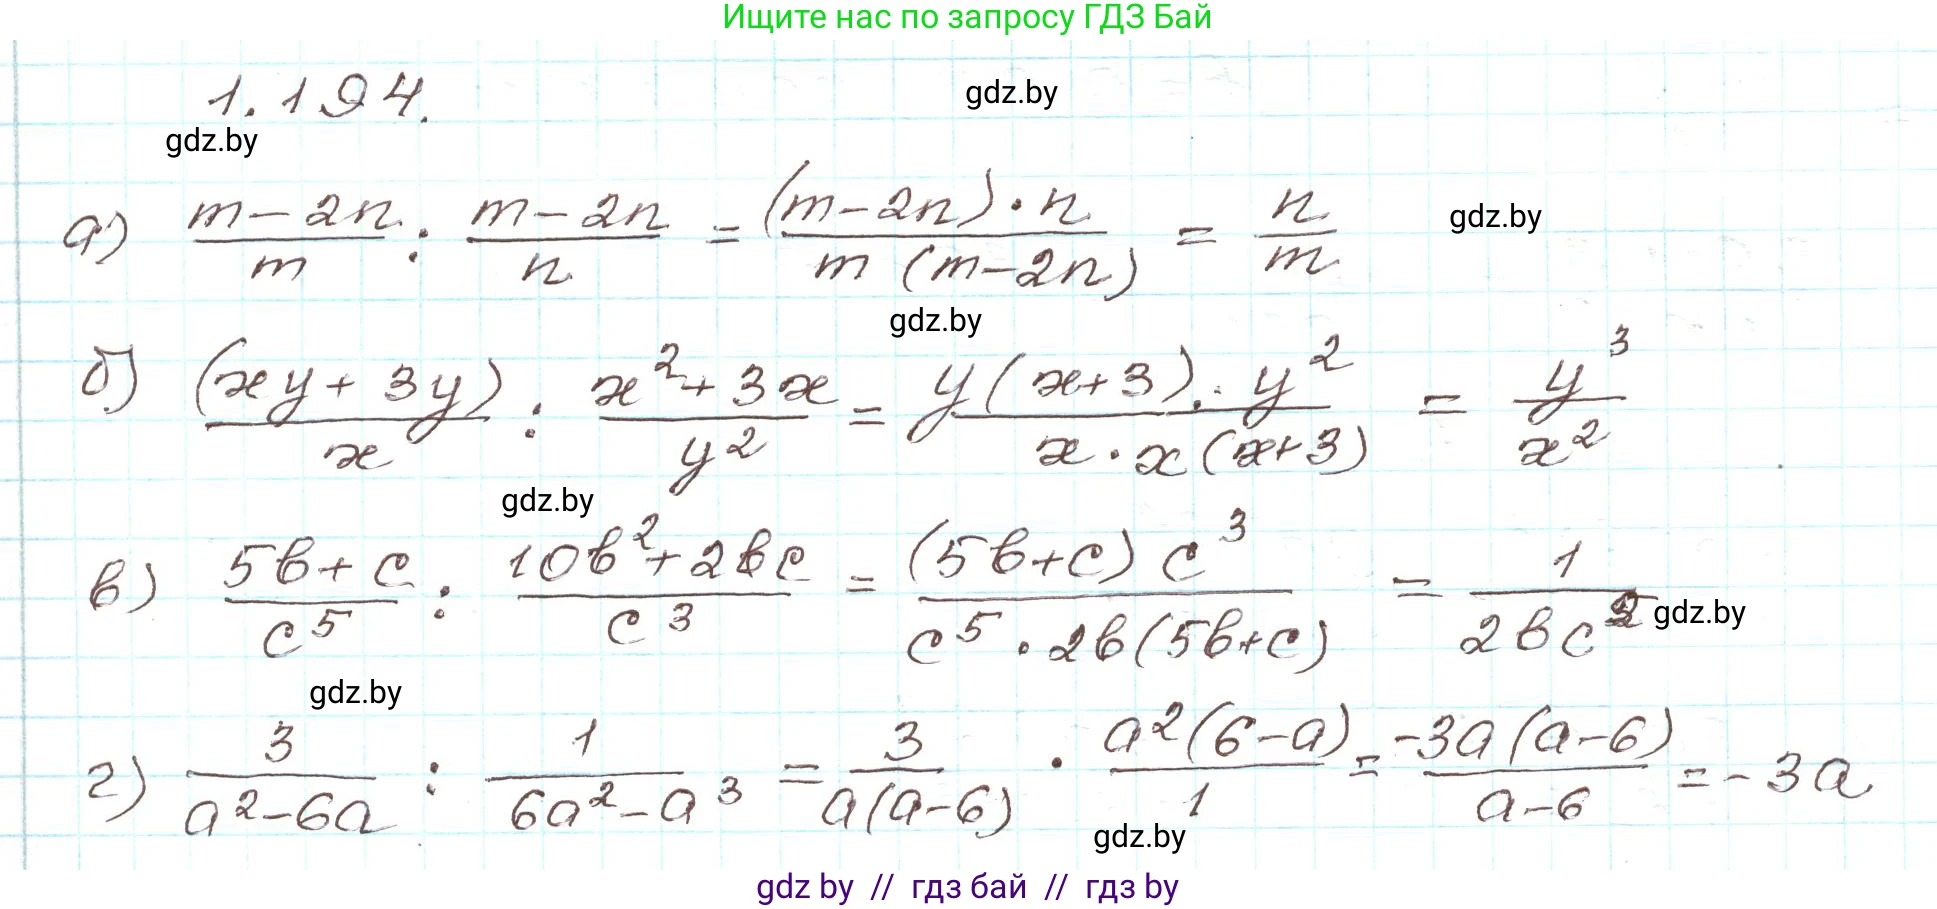 Ищите нас по запросу ГДЗ Бай
1.194.
gdz.by
gdz.by
а) (m-2n)/m : (m-2n)/n = ((m-2n)·n)/(m(m-2n)) = n/m
gdz.by
gdz.by
б) (xy+3y)/x : (x²+3x)/y² = (y(x+3)·y²)/(x·x(x+3)) = y³/x²
gdz.by
в) (5b+c)/c⁵ : (10b²+2bc)/c³ = ((5b+c)c³)/(c⁵·2b(5b+c)) = 1/(2bc²)
gdz.by
gdz.by
г) 3/(a²-6a) : 1/(6a²-a³) = 3/(a(a-6)) · (a²(6-a))/1 = (-3a(a-6))/(a-6) = -3a
gdz.by
gdz by // гдз бай // гдз by